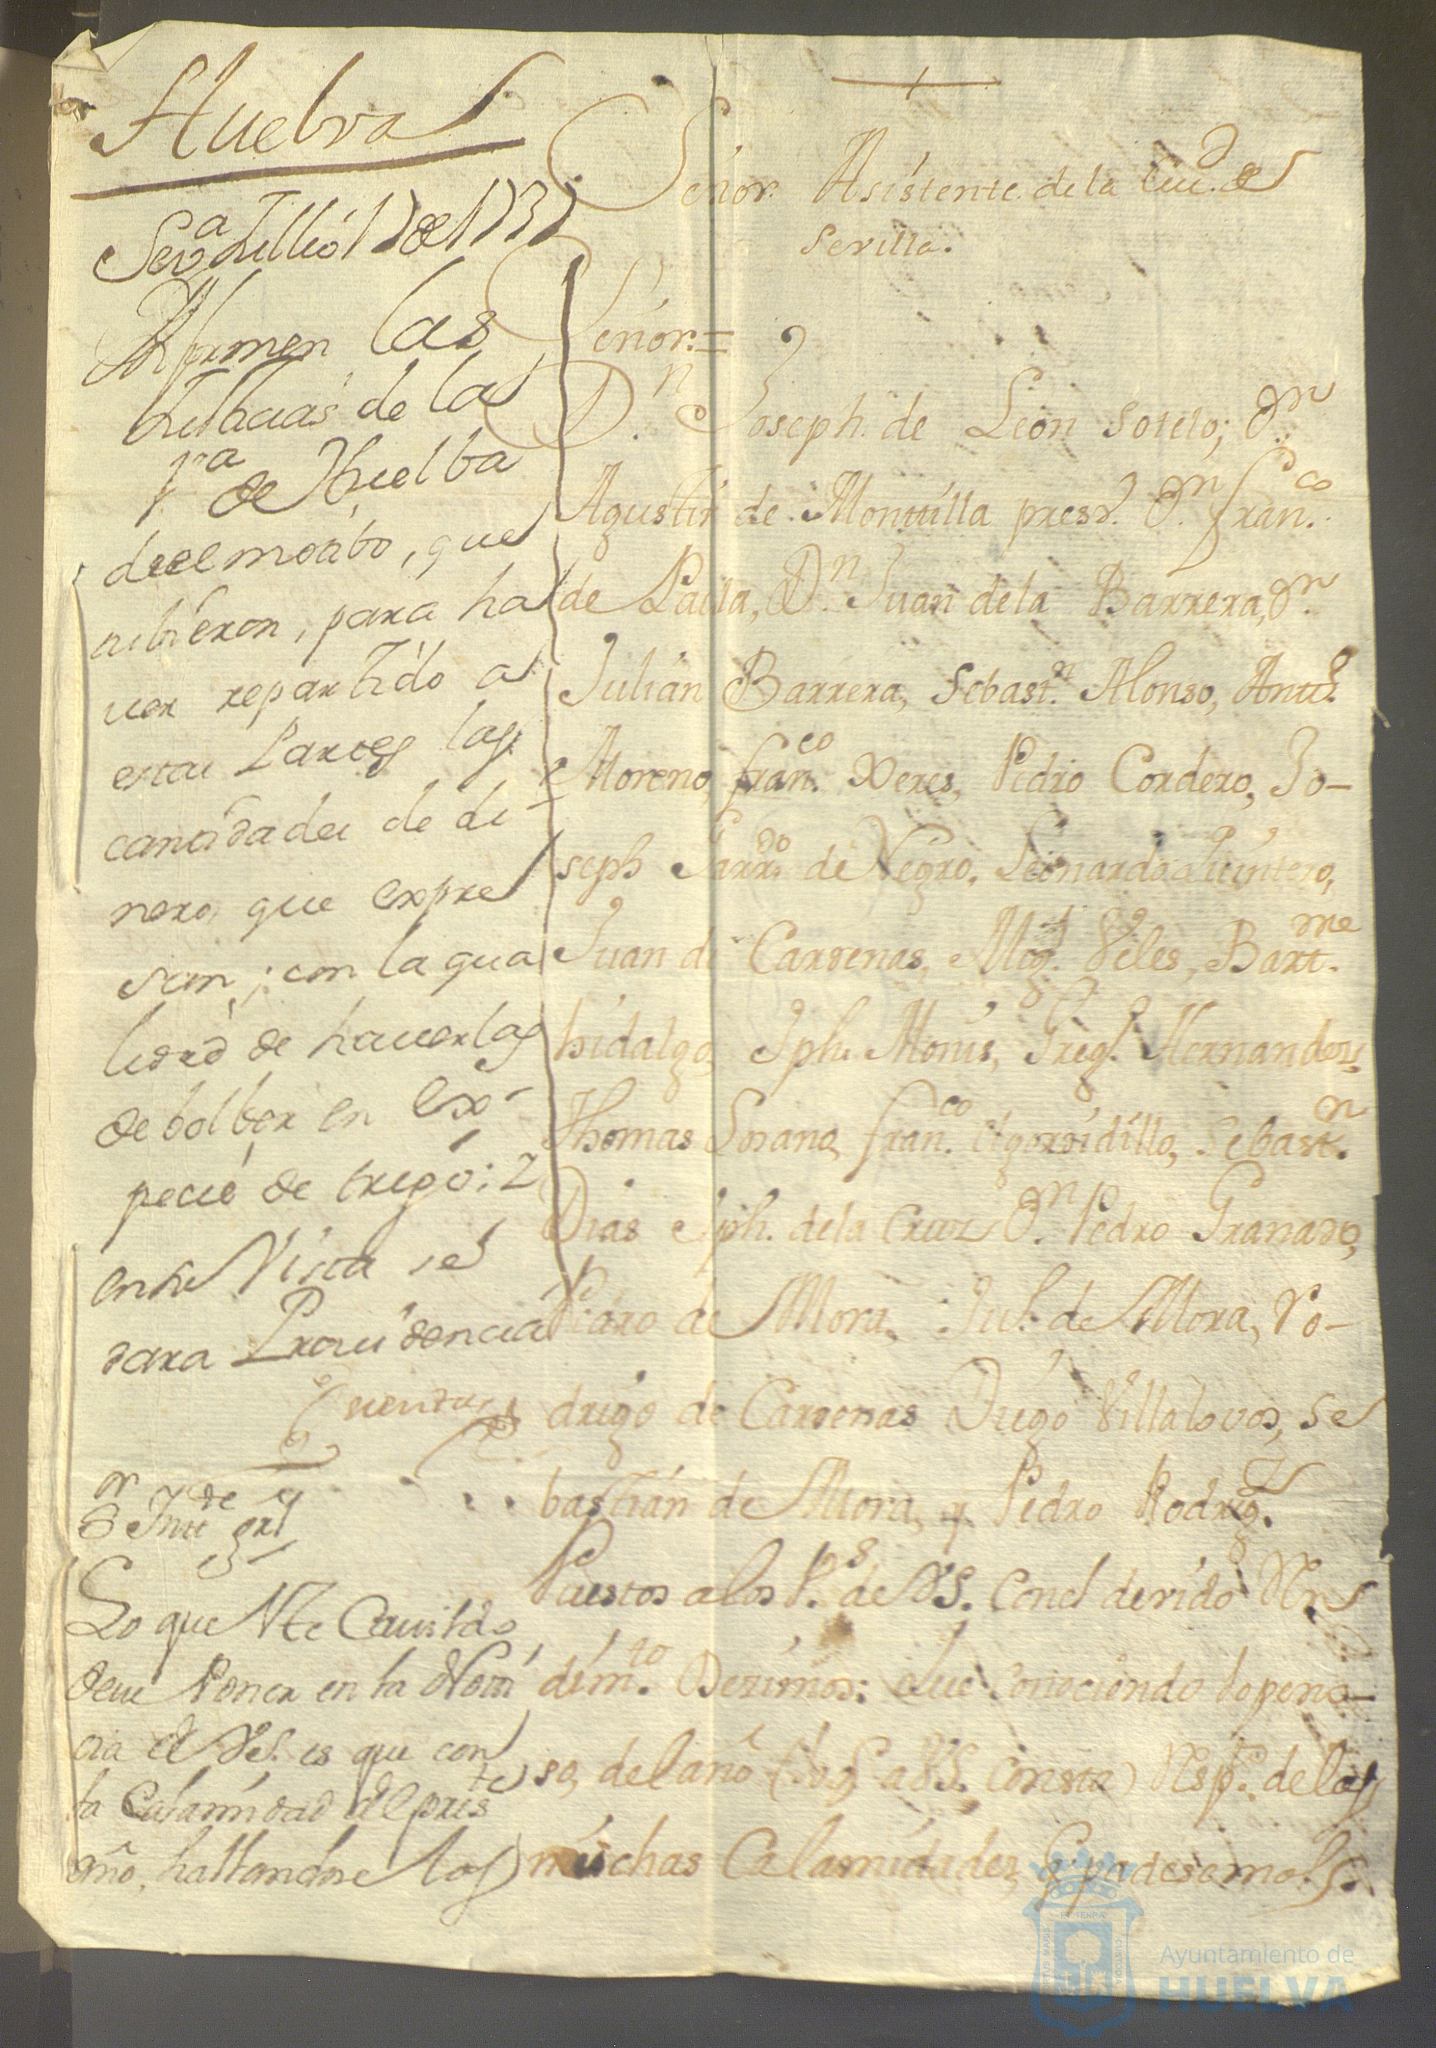 Huelva
Sev.a Jullio 17 de 1737
Ynformen las
Justicias de la
V.a de Huelba
de el motibo, que
tubieron, para ha
ver repartido a
estas Partes las
cantidades de di-
nero, que expre
san; con la qua
lidad de haverlas
de bolber en Ex-
pecie de trigo; Y
en su Vista se
dara Providencia
S.or Yntt.de gral
Lo que Vste Cavildo
deve Poner en la Noti
cia de VS. es que con
la Calamidad del press.te
año, hallandose los
Señor Asistente de la Ciu.d de
Sevilla.
Señor=
D.n Joseph de Leon Sotelo; D.n
Agustin de Montilla presv.o D.n Fran.co
de Paula, D.n Juan de la Barrera, D.n
Julian Barrera, Sebast.n Alonso, Antt.o
Moreno, Fran.co Xeres, Pedro Cordero, Jo-
seph Garr.do de Negro, Leonardo Quintero,
Juan de Cardenas, Mig.l Veles, Bart.me
hidalgo, Jph. Monis, Greg.o Hernandes,
Thomas Losano, Fran.co Algorsidillo, Sebast.n
Dias Jph. de la Cruz D.n Pedro Granado,
Pedro de Mora, Ju.o de Mora, Ro-
drigo de Cardenas Diego Villalovos, Se
bastian de Mora, y Pedro Rodrig.z
Puestos a los P.s de VS. Con el devido Ren
dim.to Dezimos: Que Conociendo lo peno-
so, del año (Como a VS. Consta) Resp.to de las
muchas Calamidades q padesemos.
Ayuntamiento de
HUELVA